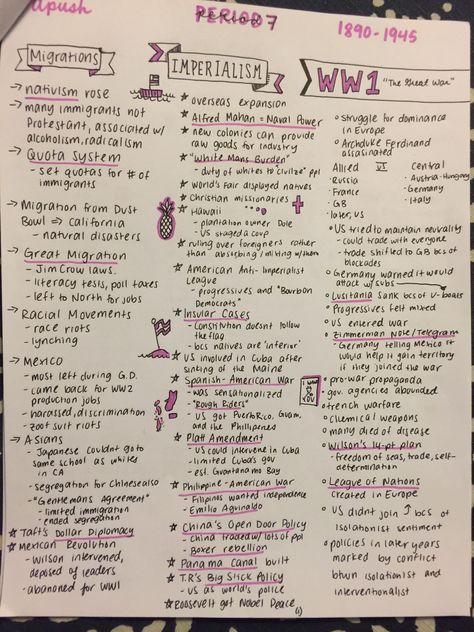 apush
PERIOD 7
1890-1945
Migrations
→ nativism rose
→ many immigrants not
Protestant, associated w/
alcoholism, radicalism
→ Quota System
- set quotas for # of
immigrants
→ Migration from Dust
Bowl ⇒ California
- natural disasters
→ Great Migration
- Jim Crow laws.
- literacy tests, poll taxes
- left to North for jobs
→ Racial Movements
- race riots
- lynching
→ Mexico
- most left during G.D.
- came back for WW2
production jobs
- harassed, discrimination
- zoot suit riots
→ Asians
- Japanese couldnt go to
same school as whites
in CA
- segregation for Chinese also
- "Gentlemans Agreement"
- limited immigration
- ended segregation
★ Taft's Dollar Diplomacy
★ Mexican Revolution
- Wilson intervened,
deposed of leaders
- abandoned for WWI
IMPERIALISM
★ overseas expansion
★ Alfred Mahan = Naval Power
★ new colonies can provide
raw goods for industry
★ "White Mans Burden"
- duty of whites to 'civilize' ppl
★ World's Fair displayed natives
★ Christian missionaries
★ Hawaii
- plantation owner Dole
- US staged a coup
★ ruling over foreigners rather
than absorbing / mixing w/ them
★ American Anti-Imperialist
League
- progressives and "Bourbon
Democrats"
★ Insular Cases
- Constitution doesnt follow
the flag
- bcs natives are 'inferior'
★ US involved in Cuba after
sinking of the Maine
★ Spanish-American War
- was sensationalized
- "Rough Riders"
- US got Puerto Rico, Guam,
and the Phillipenes
★ Platt Amendment
- US could intervene in Cuba
- limited Cuba's gov
- est. Guantanamo Bay
★ Philippine-American War
- Filipinos wanted independence
- Emilio Aguinaldo
★ China's Open Door Policy
- China traded w/ lots of ppl
- Boxer rebellion
★ Panama Canal built
★ T.R's Big Stick Policy
- US as world's police
★ Roosevelt got Nobel Peace
WW1 "The Great War"
○ struggle for dominance
in Europe
○ Archduke Ferdinand
assasinated
Allied VS Central
- Russia - Austria-Hungary
- France - Germany
- GB - Italy
- later, US
○ US tried to maintain neutrality
- could trade with everyone
- trade shifted to GB bcs of
blockades
○ Germany warned it would
attack w/ subs
○ Lusitania sank bcs of U-boats
○ Progressives felt mixed
○ US entered war
○ Zimmerman Note/Telegram
- Germany telling Mexico it
would help it gain territory
if they joined the war
I want YOU
○ pro-war propaganda
○ gov. agencies abounded
○ trench warfare
○ chemical weapons
○ many died of disease
○ Wilson's 14-pt plan
- freedom of seas, trade, self-
determination
○ League of Nations
created in Europe
○ US didnt join ↑ bcs of
isolationist sentiment
○ policies in later years
marked by conflict
btwn isolationist and
interventionalist